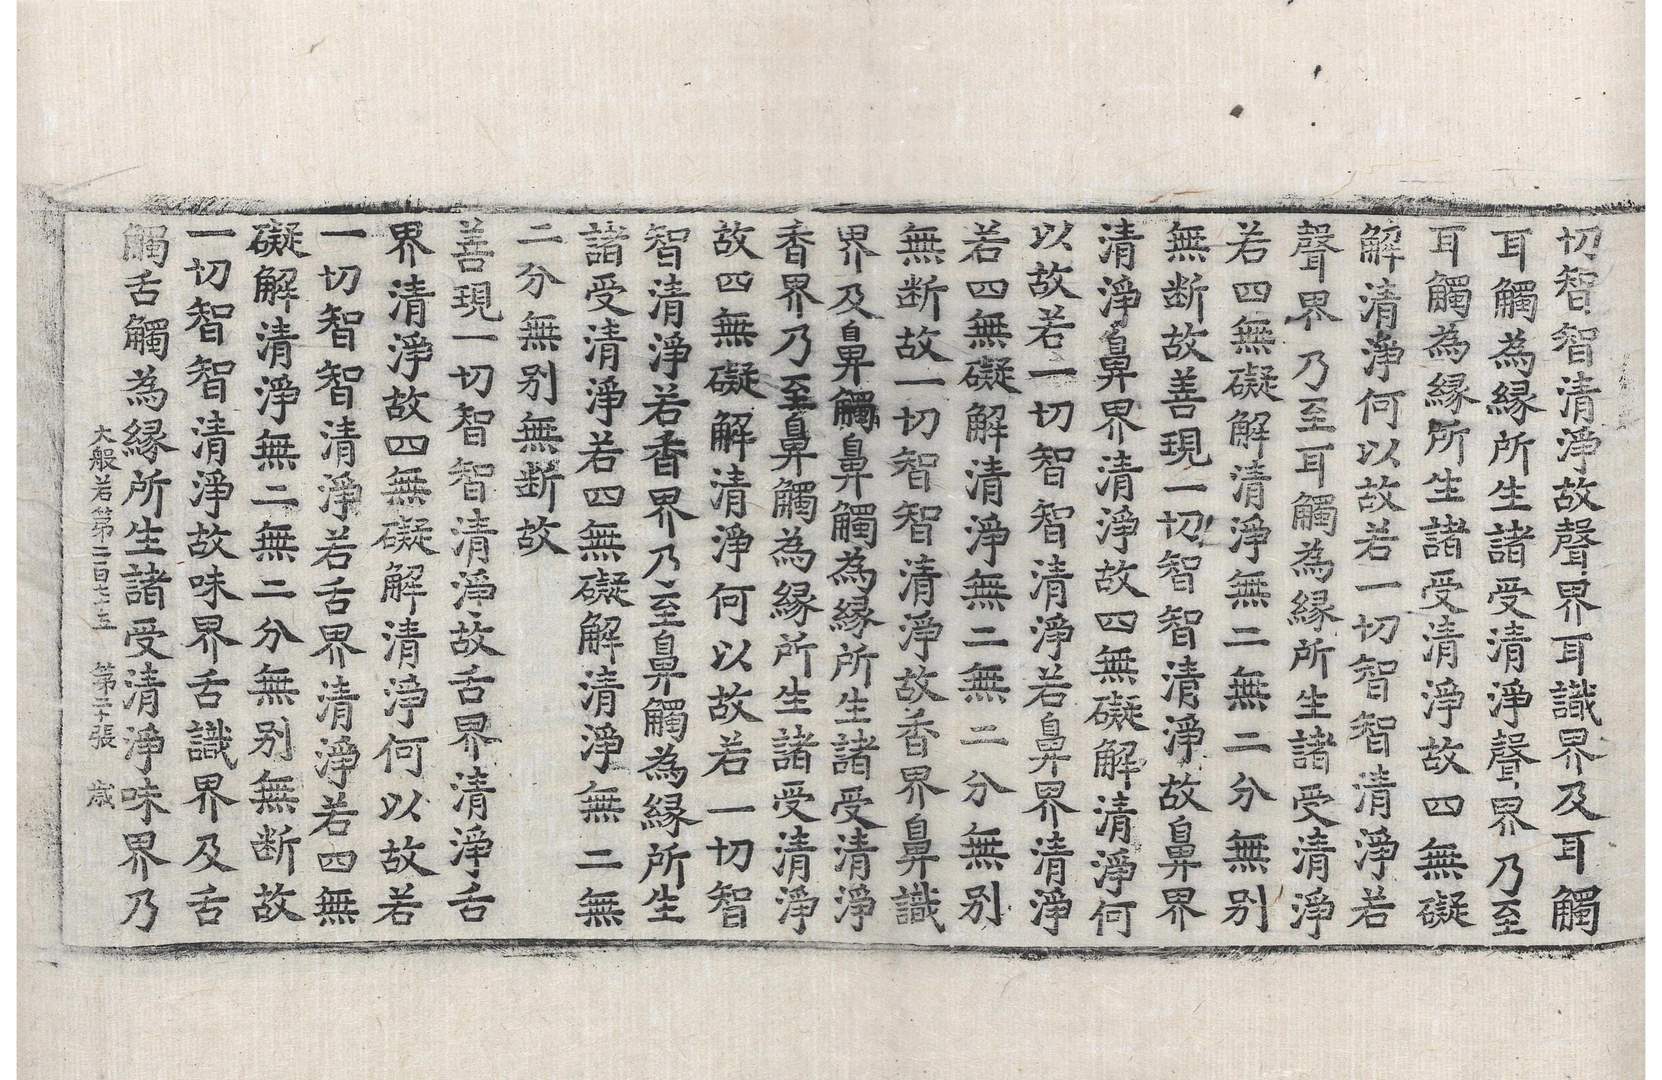 切智智清淨故聲界耳識界及耳觸
耳觸為緣所生諸受清淨聲界乃至
耳觸為緣所生諸受清淨故四無礙
解清淨何以故若一切智智清淨若
聲界乃至耳觸為緣所生諸受清淨
若四無礙解清淨無二無二分無别
無断故善現一切智智清淨故鼻界
清淨鼻界清淨故四無礙解清淨何
以故若一切智智清淨若鼻界清淨
若四無礙解清淨無二無二分無别
無断故一切智智清淨故香界鼻識
界及鼻觸鼻觸為緣所生諸受清淨
香界乃至鼻觸為緣所生諸受清淨
故四無礙解清淨何以故若一切智
智清淨若香界乃至鼻觸為緣所生
諸受清淨若四無礙解清淨無二無
二分無别無断故
善現一切智智清淨故舌界清淨舌
界清淨故四無礙解清淨何以故若
一切智智清淨若舌界清淨若四無
礙解清淨無二無二分無别無断故
一切智智清淨故味界舌識界及舌
觸舌觸為緣所生諸受清淨味界乃
大般若第二百七十三 第二十張 歳